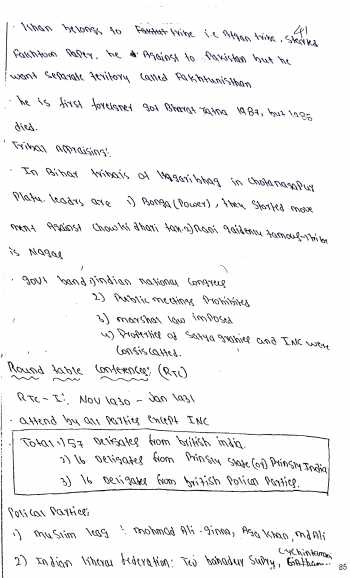 41
. Ithan belongs to Pakhtat tribe i.e Afgan tribe, started
Pashtoon Paper, he Against to Pakistan but he
want separate teritory called Pakhtunisthan
. he is first foreigner got Bharat ratna 1987, but 1988
died.
Tribal appraising:
. In Bihar tribals at Hagaribhag in chotanagapur
Platu leadrs are 1) Bonga (Power), they started move
ment Against chowkidhari tax 2) Rani gaidenlu famous-tribe
is Nagas
. govt band 1) indian national congrees
2) Public meetings Prohibited
3) marshal law imposed
4) Properties of Satya grahies and INC were
consiscatted.
Round table conferences: (RTC)
RTC-I: NOV 1930 - Jan 1931
. attend by all Parties except INC
. Total: 1) 57 Deligates from british india
2) 16 Deligates from Prinsly state (or) Prinsly India
3) 16 Deligates from british Polical Parties.
Polical Parties:
1) muslim leag : mohmad Ali-ginna, Aga khan, md Ali
2) Indian liberal federation: Tej bahadur Supry, cychintamani
85